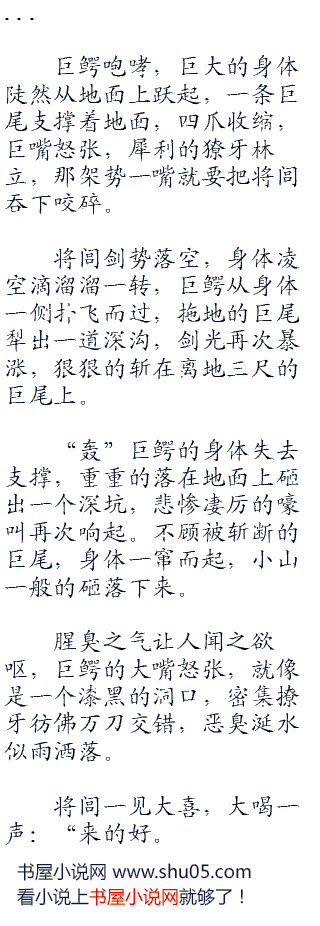 ...
巨鳄咆哮，巨大的身体
陡然从地面上跃起，一条巨
尾支撑着地面，四爪收缩，
巨嘴怒张，犀利的獠牙林
立，那架势一嘴就要把将闾
吞下咬碎。
将闾剑势落空，身体凌
空滴溜溜一转，巨鳄从身体
一侧扑飞而过，拖地的巨尾
犁出一道深沟，剑光再次暴
涨，狠狠的斩在离地三尺的
巨尾上。
“轰”巨鳄的身体失去
支撑，重重的落在地面上砸
出一个深坑，悲惨凄厉的嚎
叫再次响起。不顾被斩断的
巨尾，身体一窜而起，小山
一般的砸落下来。
腥臭之气让人闻之欲
呕，巨鳄的大嘴怒张，就像
是一个漆黑的洞口，密集獠
牙彷佛万刀交错，恶臭涎水
似雨洒落。
将闾一见大喜，大喝一
声：“来的好。
书屋小说网 www.shu05.com
看小说上书屋小说网就够了！